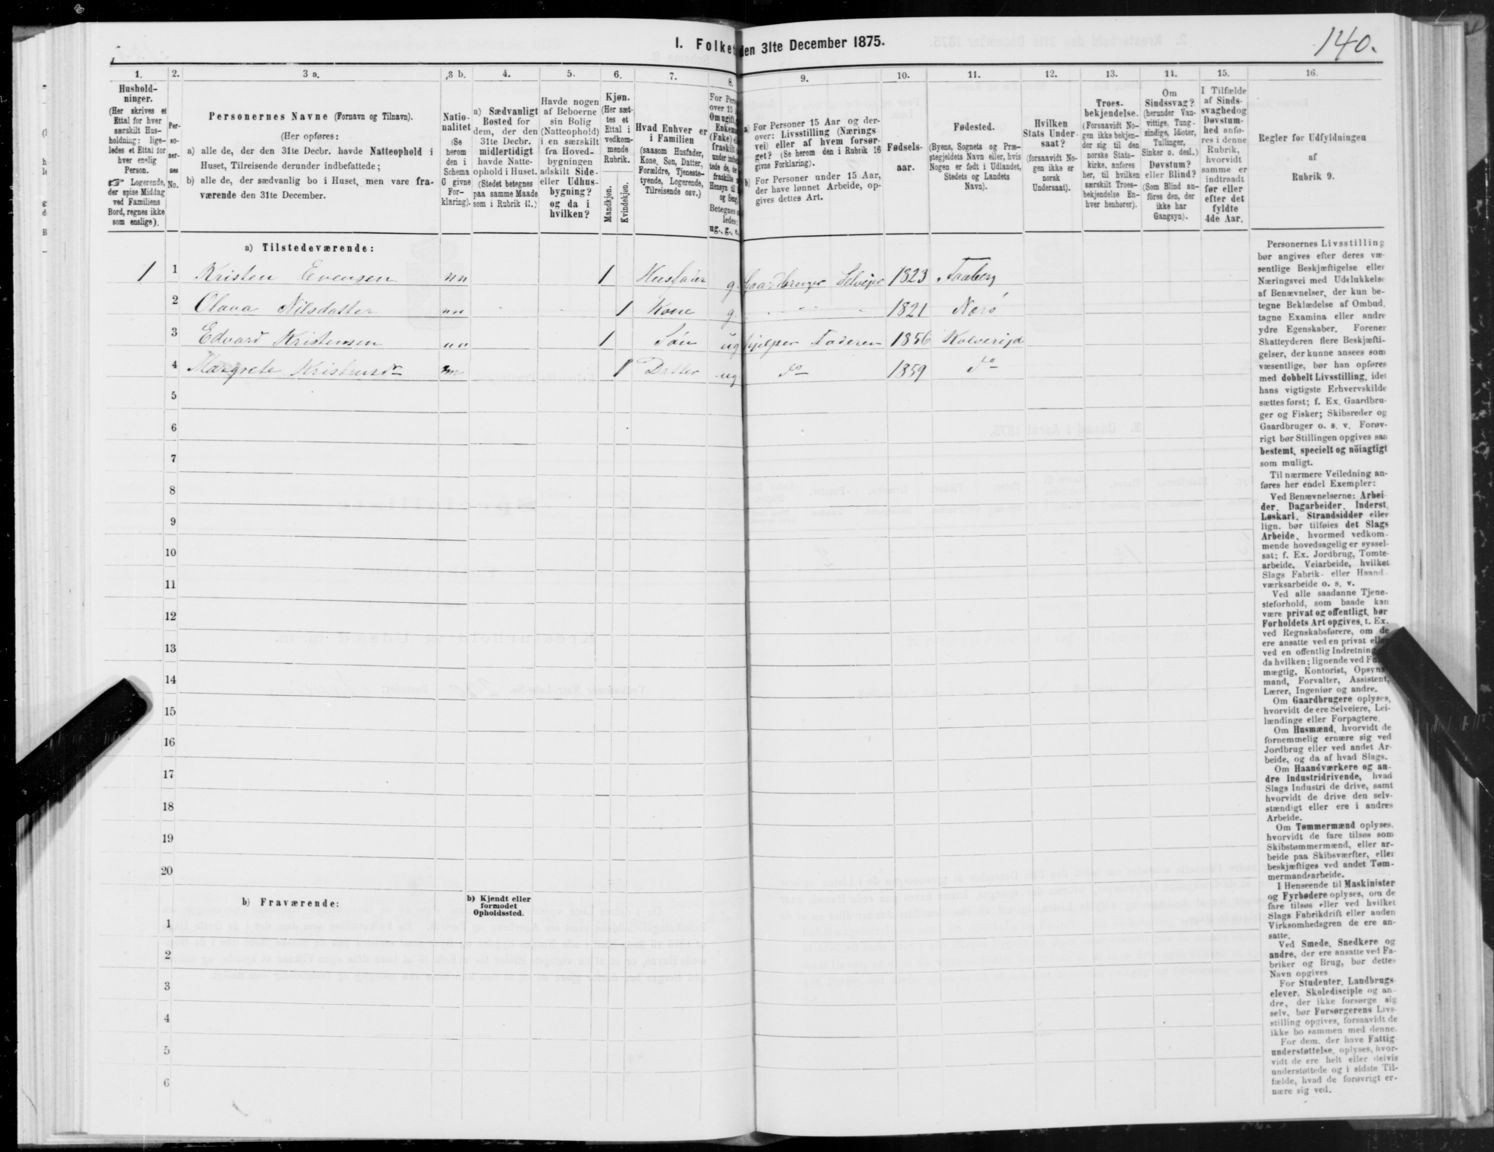 140.
I. Folke den 31te December 1875.
1. 2. 3 a. 3 b. 4. 5. 6. 7. 8. 9. 10. 11. 12. 13. 11. 15. 16.
Hushold-
ninger.
(Her skrives et
Ettal for hver
særskilt Hus-
holdning; lige-
ledes et Ettal for
hver enslig
Person.
Logerende,
der spise Middag
ved Familiens
Bord, regnes ikke
som enslige).
Per-
so-
ner-
nes
No.
Personernes Navne (Fornavn og Tilnavn).
(Her opføres:
a) alle de, der den 31te Decbr. havde Natteophold i
Huset, Tilreisende derunder indbefattede;
b) alle de, der sædvanlig bo i Huset, men vare fra-
værende den 31te December.
Natio-
nalitet
(Se
herom
den i
Schema
G givne
For-
klaring).
a) Sædvanligt
Bosted for
dem, der den
31te Decbr.
midlertidigt
havde Natte-
ophold i Huset.
(Stedet betegnes
paa samme Maade
som i Rubrik 11.)
Havde nogen
af Beboerne
sin Bolig
(Natteophold)
i en særskilt
fra Hoved-
bygningen
adskilt Side-
eller Udhus-
bygning?
og da i
hvilken?
Kjøn.
(Her sæt-
tes et
Ettal i
vedkom-
mende
Rubrik.
Mandkjøn.
Kvindekjøn.
Hvad Enhver er
i Familien
(saasom Husfader,
Kone, Søn, Datter,
Forældre, Tjeneste-
tyende, Logerende,
Tilreisende osv.)
For Pers
over 15
Om ugift,
Enkema
(Fnke)
fraskilt
Betegnes
ledes:
ug., g., e.
a) For Personer 15 Aar og der-
over: Livsstilling (Nærings
vei) eller af hvem forsør-
get? (Se herom den i Rubrik 16
givne Forklaring).
b) For Personer under 15 Aar,
der have lønnet Arbeide, op-
gives dettes Art.
Fødsels-
aar.
Fødested.
(Byens, Sognets og Præ-
stegjeldets Navn eller, hvis
Nogen er født i Udlandet,
Stedets og Landets
Navn).
Hvilken
Stats Under-
saat?
(forsaavidt No-
gen ikke er
norsk
Undersaat).
Troes-
bekjendelse.
(Forsaavidt No-
gen ikke bekjen-
der sig til den
norske Stats-
kirke, anføres
her, til hvilken
særskilt Troes-
bekjendelse En-
hver henhører).
Om
Sindssvag?
(herunder Van-
vittige, Tung-
sindige, Idioter,
Tullinger,
Sinker o. desl.)
Døvstum?
eller Blind?
(Som Blind an-
føres den, der
ikke har
Gangsyn).
I Tilfælde
af Sinds-
svaghedog
Døvstum-
hed anfø-
res i denne
Rubrik,
hvorvidt
samme er
indtraadt
før eller
efter det
fyldte
4de Aar.
Regler for Udfyldningen
af
Rubrik 9.
a) Tilstedeværende:
1 1 Kristen Evensen nn 1 Husfader g Gaardbruger Selveier 1823 Faaberg
2 Olava Nilsdatter nn 1 Kone g 1821 Nærø
3 Edvard Kristensen nn 1 Søn ug hjelper Faderen 1856 Kolvereid
4 Margrete Kristensdr nn 1 Datter ug do 1859 do
5
6
7
8
9
10
11
12
13
14
15
16
17
18
19
20
b) Fraværende:
b) Kjendt eller
formodet
Opholdssted.
1
2
3
4
5
6
Personernes Livsstilling
bør angives efter deres væ-
sentlige Beskjæftigelse eller
Næringsvei med Udelukkelse
af Benævnelser, der kun be-
tegne Beklædelse af Ombud,
tagne Examina eller andre
ydre Egenskaber. Forener
Skatteyderen flere Beskjæfti-
gelser, der kunne ansees som
væsentlige, bør han opføres
med dobbelt Livsstilling, idet
hans vigtigste Erhvervskilde
sættes først; f. Ex. Gaardbru-
ger og Fisker; Skibsreder og
Gaardbruger o. s. v. Forøv-
rigt bør Stillingen opgives saa
bestemt, specielt og nöiagtigt
som muligt.
Til nærmere Veiledning an-
føres her endel Exempler:
Ved Benævnelserne: Arbei-
der, Dagarbeider, Inderst,
Løskarl, Strandsidder eller
lign. bør tilføies det Slags
Arbeide, hvormed vedkom-
mende hovedsagelig er syssel-
sat; f. Ex. Jordbrug, Tomte-
arbeide, Veiarbeide, hvilket
Slags Fabrik- eller Haand-
værksarbeide o. s. v.
Ved alle saadanne Tjene-
steforhold, som baade kan
være privat og offentligt, bør
Forholdets Art opgives, t. Ex.
ved Regnskabsførere, om de
ere ansatte ved en privat eller
ved en offentlig Indretning
da hvilken; lignende ved
mægtig, Kontorist, Opsyns-
mand, Forvalter, Assistent,
Lærer, Ingeniør og andre.
Om Gaardbrugere oplyses,
hvorvidt de ere Selveiere, Lei-
lændinge eller Forpagtere.
Om Husmænd, hvorvidt de
fornemmelig ernære sig ved
Jordbrug eller ved andet Ar-
beide, og da af hvad Slags.
Om Haandværkere og an-
dre Industridrivende, hvad
Slags Industri de drive, samt
hvorvidt de drive den selv-
stændigt eller ere i andres
Arbeide.
Om Tømmermænd oplyses,
hvorvidt de fare tilsøs som
Skibstømmermænd, eller ar-
beide paa Skibsværfter, eller
beskjæftiges ved andet Tøm-
mermandsarbeide.
I Henseende til Maskinister
og Fyrbødere oplyses, om de
fare tilsøs eller ved hvilket
Slags Fabrikdrift eller anden
Virksomhedsgren de ere an-
satte.
Ved Smede, Snedkere og
andre, der ere ansatte ved Fa-
briker og Brug, bør dettes
Navn opgives
For Studenter, Landbrugs-
elever, Skoledisciple og an-
dre, der ikke forsørge sig
selv, bør Forsørgerens Livs-
stilling opgives, forsaavidt de
ikke bo sammen med denne.
For dem, der have Fattig-
understøttelse, oplyses, hvor-
vidt de ere helt eller delvis
understøttede og i sidste Til-
fælde, hvad de forøvrigt er-
nære sig ved.